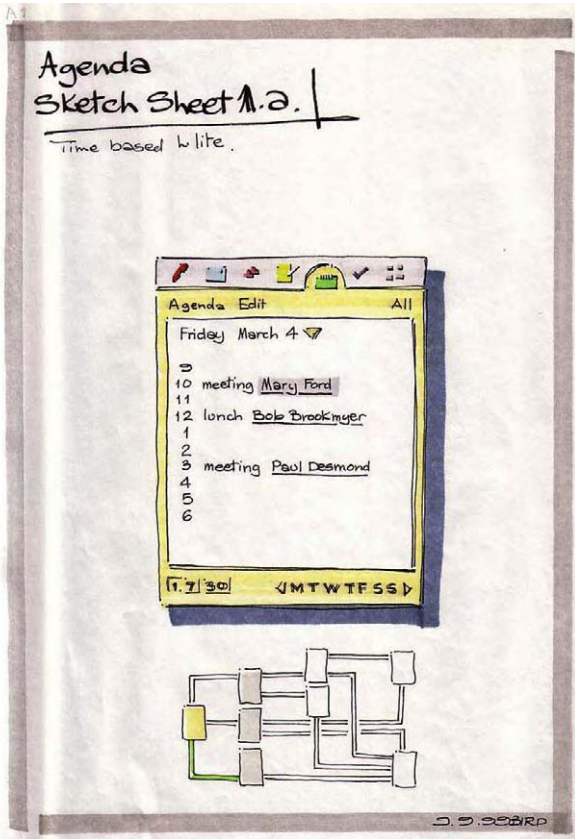 A1
Agenda
Sketch Sheet 1.a.
Time based h lite.
Agenda Edit All
Friday March 4
9
10 meeting Mary Ford
11
12 lunch Bob Brookmyer
1
2
3 meeting Paul Desmond
4
5
6
1. 7 30 M T W T F S S